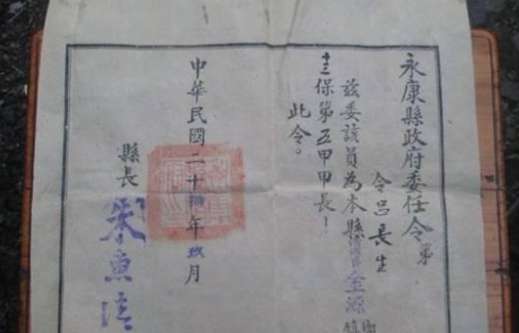 永康縣政府委任令 第
令呂長生
茲委該員為本縣金源
十三保第五甲甲長！
此令。
中華民國二十 年玖月
縣長